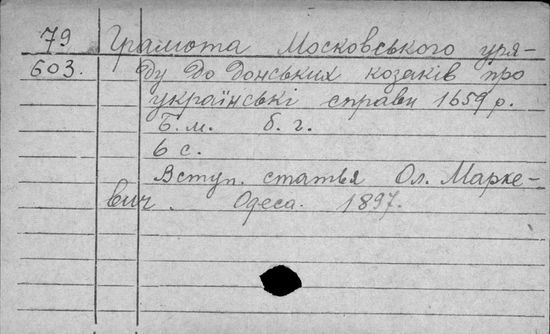 79 Грамота Московського уря-
603. ду до Донських козаків про
українські справи 1659 р.
Б.м. б.г.
6 с.
Вступ. статья Ол. Марке-
вич. Одеса. 1897.